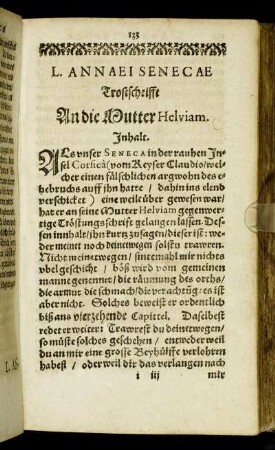 133
L. ANNAEI SENECAE
Trostschrifft
An die Mutter Helviam.
Inhalt.
ALs vnser SENECA in der rauhen In-
sel Corsicâ (vom Keyser Claudio/ wel-
cher einen fälschlichen argwohn des e-
hebruchs auff ihn hatte / dahin ins elend
verschicket) eine weile über gewesen war/
hat er an seine Mutter Helviam gegenwer-
tige Tröstungsschrift gelangen lassen. Des-
sen inhalt/ ihn kurtz zu sagen/ dieser ist: we-
der meinet noch deinetwegen solstu trawren.
Nicht meinetwegen / sintemahl mir nichts
vbel geschicht / böß wird vom gemeinen
manne genennet / die räumung des orths/
die armut die schmach/ die verachtüg: es ist
aber nicht. Solches beweist er ordentlich
biß ans vierzehende Capittel. Daselbest
redet er weiter: Trawrest du deinetwegen/
so müste solches geschehen / entweder weil
du an mir eine grosse Beyhülffe verlohren
habest / oder weil dir das verlangen nach
i iij
mir